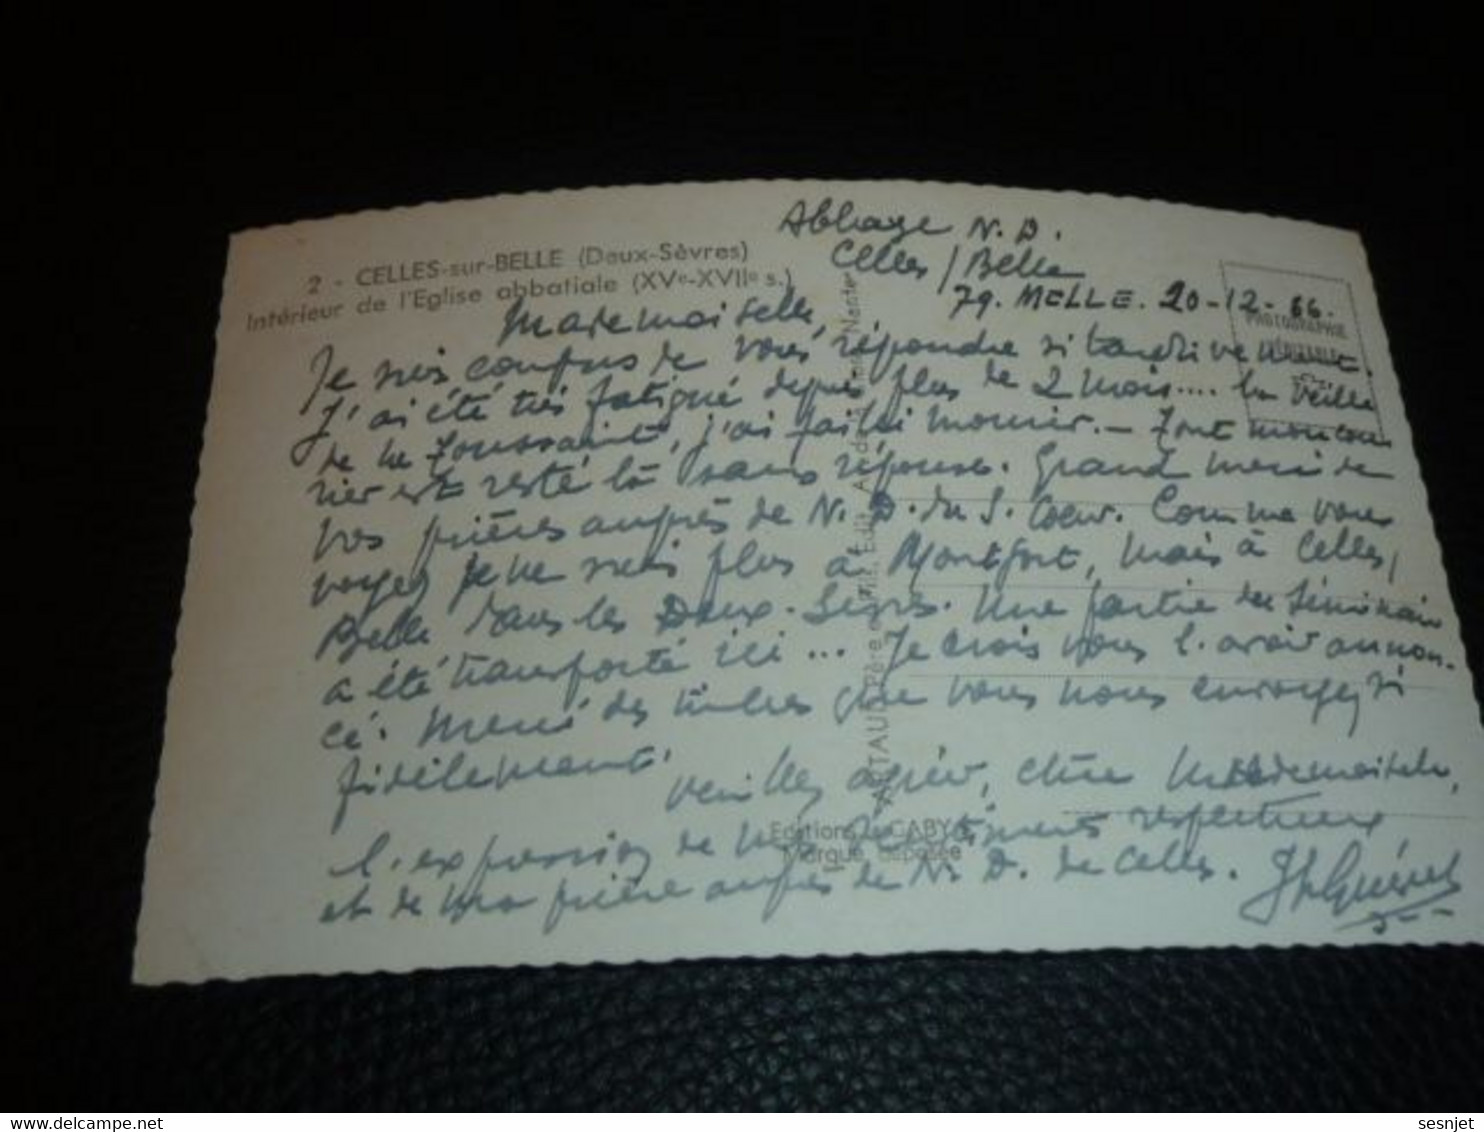 Abbaye N. D.
Celles / Belle
79. MELLE. 20-12-66.
2 - CELLES-sur-BELLE (Deux-Sèvres)
Intérieur de l'Eglise abbatiale (XVe-XVIIe s.)
PHOTOGRAPHIE
VÉRITABLE
Mademoiselle,
Je suis confus de vous répondre si tardivement.
J'ai été très fatigué depuis plus de 2 mois.... La veille
de la Toussaint, j'ai failli mourir. - Tout mon cour
rier est resté là sans réponse. Grand merci de
vos prières auprès de N. D. du S. Coeur. Comme vous
voyez je ne suis plus à Montfort, mais à Celles/
Belle dans les Deux-Sèvres. Une partie du Séminaire
a été transporté ici ... Je crois vous l'avoir annon-
cé. Merci des timbres que vous nous envoyez si
fidèlement.
Veuillez agréer, chère Mademoiselle,
l'expression de mes sentiments respectueux
et de ma prière auprès de N. D. de Celles.
ARTAUD Père
Edit.
Nantes
Editions GABY
Marque déposée
sesnjet